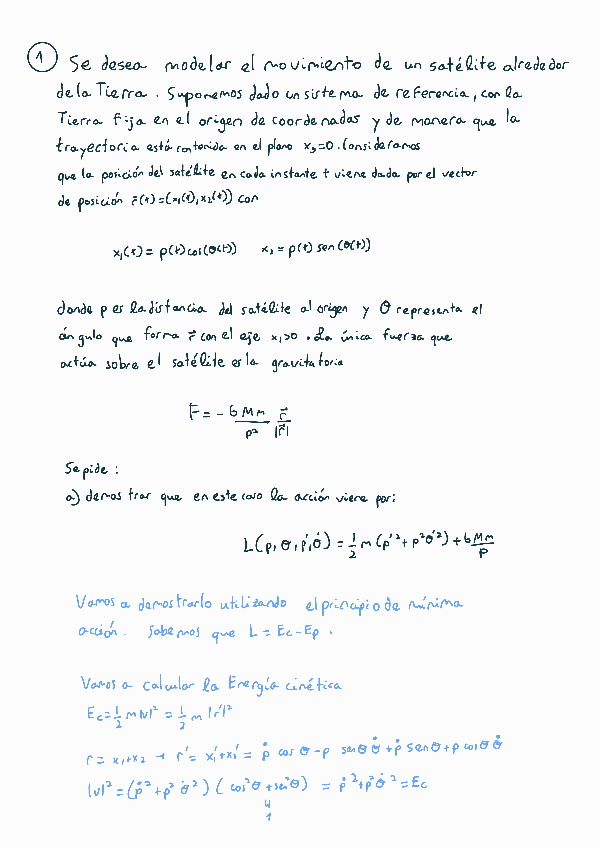 1 Se desea modelar el movimiento de un satélite alrededor
de la Tierra. Suponemos dado un sistema de referencia, con la
Tierra fija en el origen de coordenadas y de manera que la
trayectoria está contenida en el plano x₃=0. Consideramos
que la posición del satélite en cada instante t viene dada por el vector
de posición r⃗(t)=(x₁(t),x₂(t)) con
x₁(t)=ρ(t)cos(θ(t)) x₂=ρ(t) sen(θ(t))
donde ρ es la distancia del satélite al origen y θ representa el
ángulo que forma r⃗ con el eje x₁>0. La única fuerza que
actúa sobre el satélite es la gravitatoria
F = - GMm/ρ² r⃗/|r⃗|
Se pide:
a) demostrar que en este caso la acción viene por:
L(ρ,θ,ρ̇,θ̇) = 1/2 m(ρ'²+ρ²θ'²)+GMm/ρ
Vamos a demostrarlo utilizando el principio de mínima
acción. Sabemos que L = Ec-Ep.
Vamos a calcular la Energía cinética
Ec=1/2 m|v|² = 1/2 m |r'|²
r = x₁+x₂ → r' = x₁'+x₂' = ρ̇ cos θ-ρ senθ θ̇+ρ̇ senθ+ρ cosθ θ̇
|v|²=(ρ̇²+ρ²θ̇²)(cos²θ+sen²θ) = ρ̇²+ρ²θ̇²=Ec
1